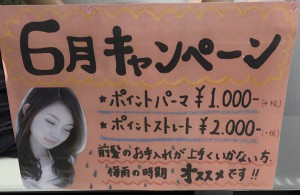 6月キャンペーン
★ポイントパーマ ¥1.000-(+税)
★ポイントストレート ¥2.000-(+税)
前髪のお手入れが上手くいかない方、
梅雨の時期 オススメです!!